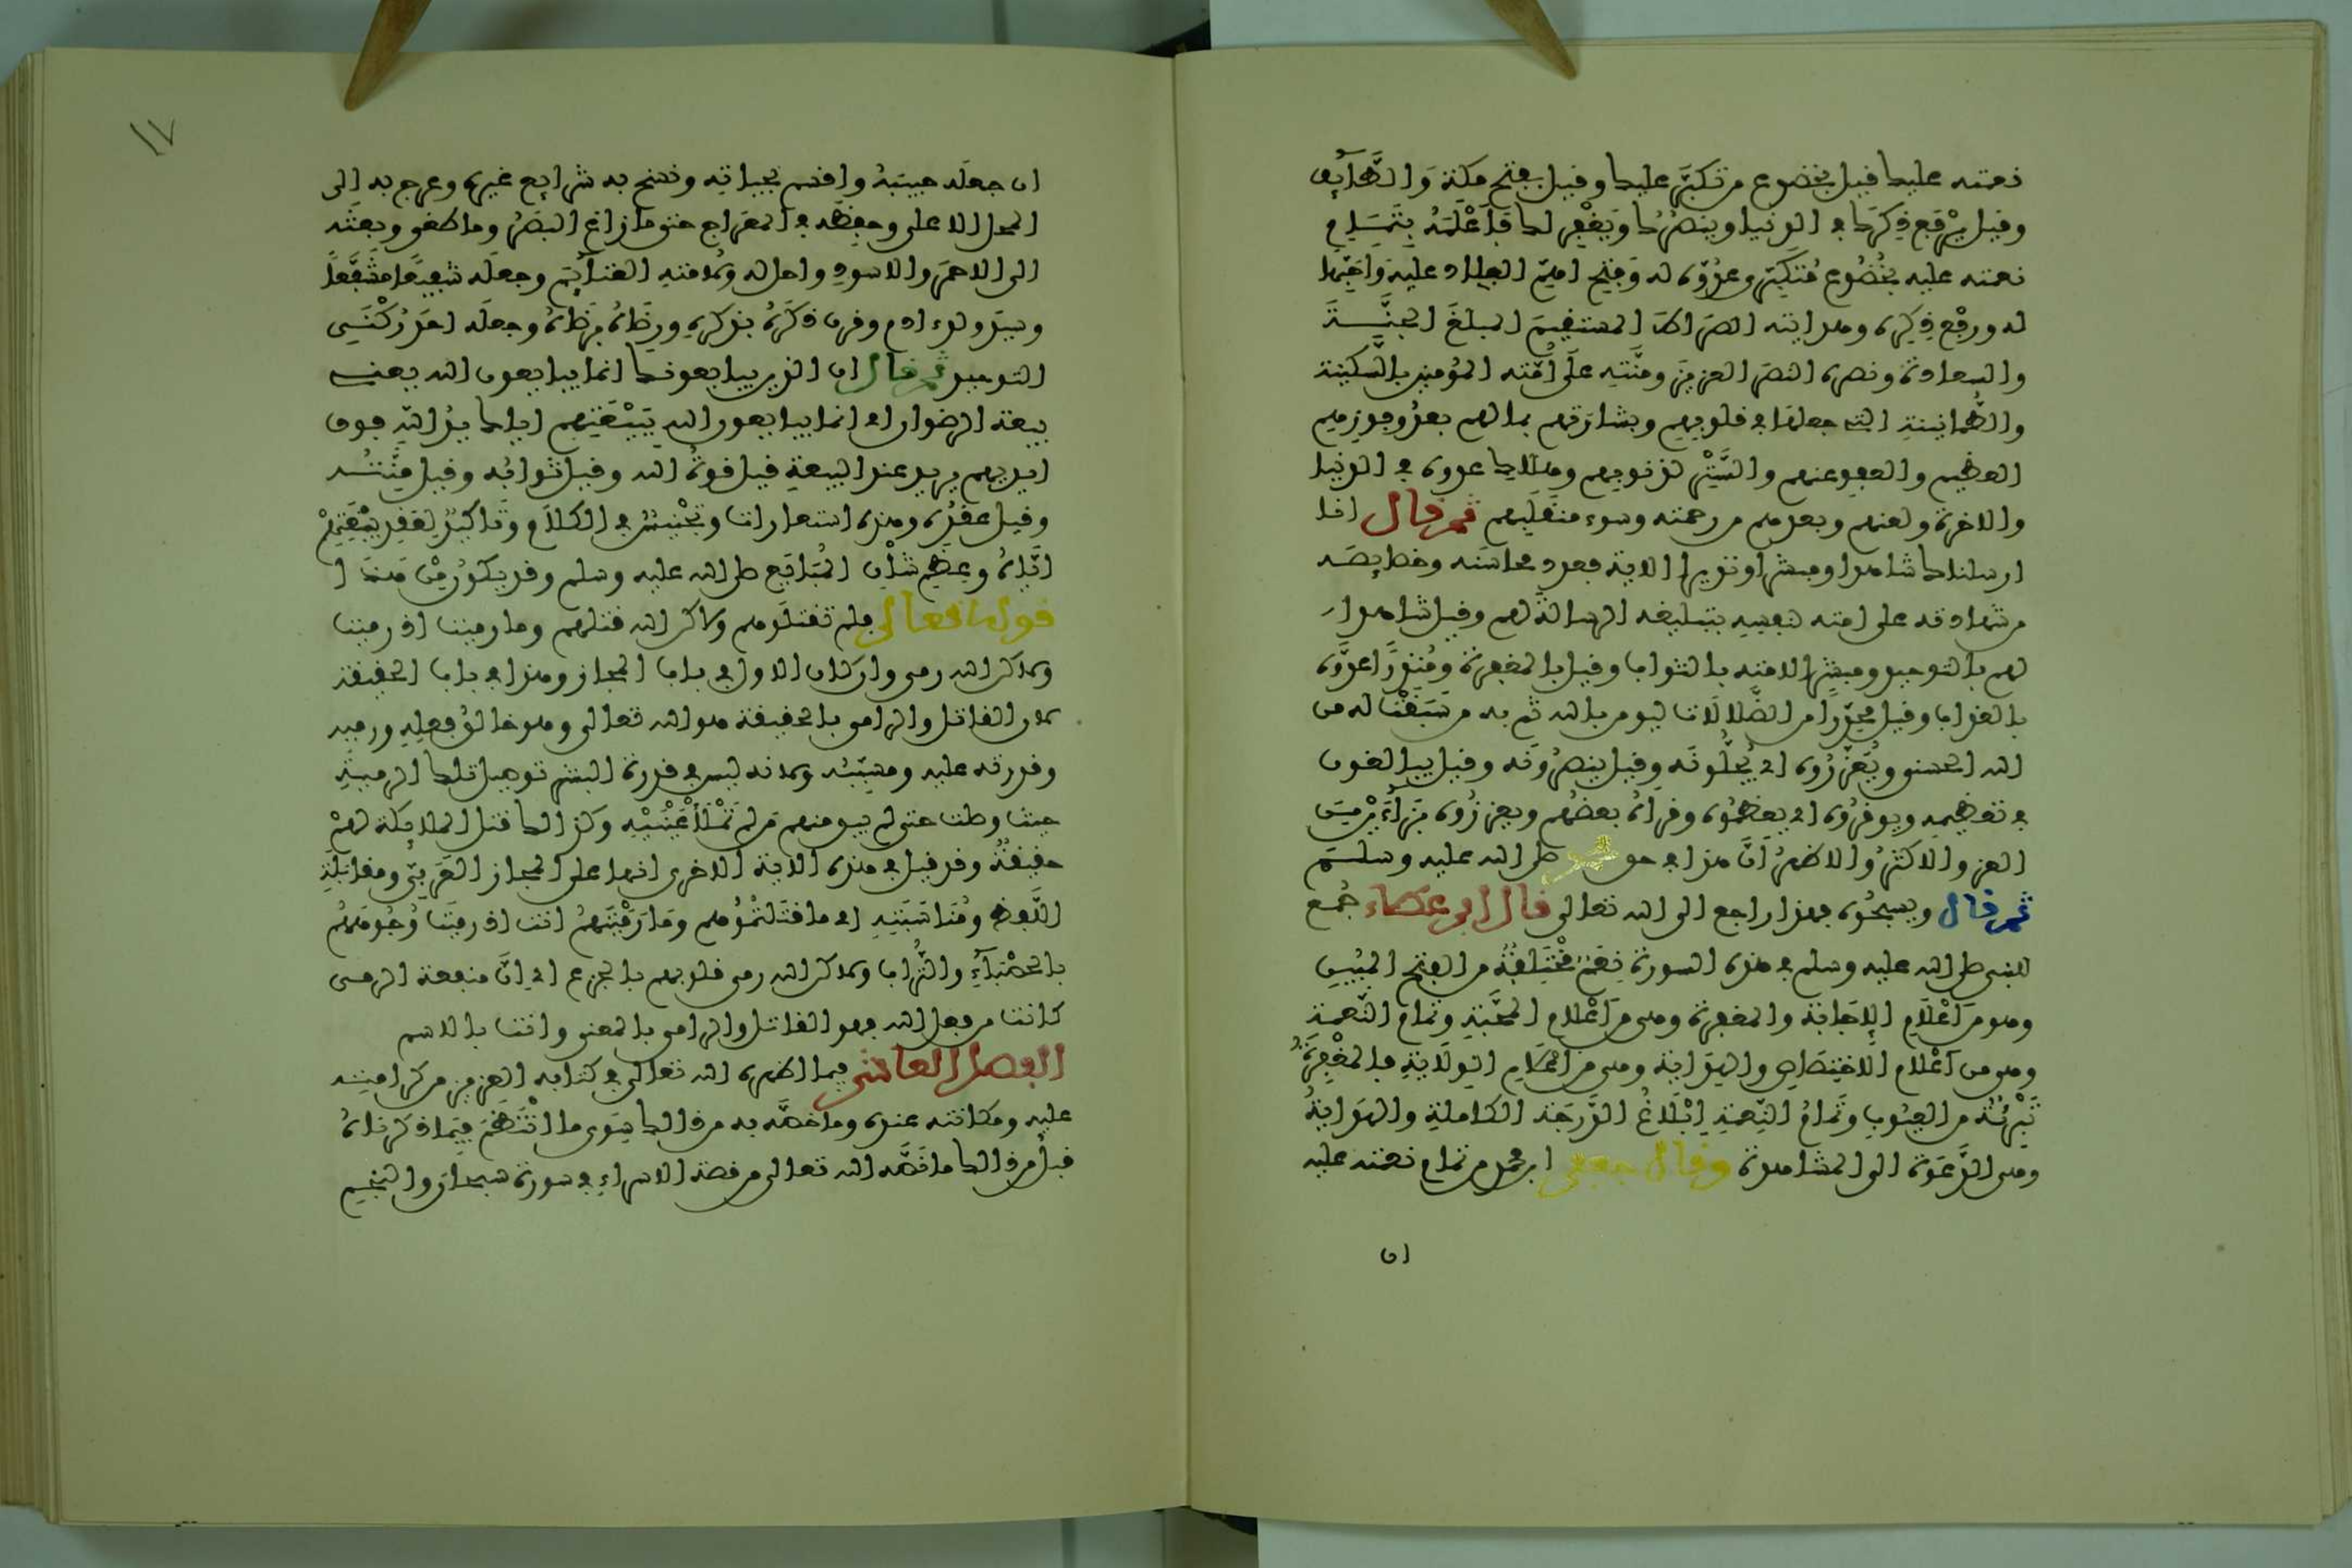 نعمته عليك فيل بخضوع من تكبر عليك وفيل بفتح مكة والطَّآئف
وفيل يرفع ذكرك في الدنيا وينصرك ويغفر لك فأعلمه بتمام
نعمته عليه بخضوع متكبر عدوه له وفتح اهم البلاد عليه واحبها
له ورفع ذكره وهدايته الصراط المستقيم المبلغ الجنة
والسعادة ونصره النصر العزيز ومنته على أمته المومنين بالسكينة
والطمأنينة التي جعلها في فلوبهم وبشارتهم بما لهم بعد وفوزهم
العظيم والعفو عنهم والستر لذنوبهم وهلاك عدوه في الدنيا
والاخرة ولعنهم وبعدهم من رحمته وسوء منقلبهم ثم قال انا
ارسلناك شاهدا ومبشرا ونذيرا الاية فعد محاسنه وخصايصه
من شهادته على امته لنفسه بتبليغه الرسالة لهم وفيل شاهدا
لهم بالتوحيد ومبشرا لامته بالثواب وفيل بالمغفرة ومنذرا عدوه
بالعذاب وفيل محذرا من الضلالات ليومن بالله ثم به من سبقت له من
الله الحسنى ويعزروه اي يجلونه وفيل ينصرونه وفيل يبالغون
في تعظيمه ويوفروه اي يعظموه وفرأه بعضهم ويعززوه بزاءين من
العز والاكثر والاظهر ان هذا في حق محمد صلى الله عليه وسلم
ثم قال ويسبحوه فهذا راجع الى الله تعالى قال ابن عطاء جمع
للنبي صلى الله عليه وسلم في هذه السورة نعم مختلفة من الفتح المبين
وهو من أعلام الإجابة والمغفرة وهي من أعلام المحبة وتمام النعمة
وهو من أعلام الاختصاص والهداية وهي من أعلام الولاية فالمغفرة
تبرئة من العيوب وتمام النعمة إبلاغ الدرجة الكاملة والهداية
وهي الدعوة الى المشاهدة وقال جعفر ابن محمد من تمام نعمته عليه
ان
١٧
ان جعله حبيبه وافسم بحياته ونسخ به شرايع غيره وعرج به إلى
المحل الاعلى وحفظه في المعراج حتى ما زاغ البصر وما طغى وبعثه
الى الاحمر والاسود واحل له ولامته الغنآئم وجعله شفيعا مشفعا
وسيد ولد ادم وفرن ذكره بذكره ورضاه برضاه وجعله احد ركني
التوحيد ثم قال ان الذين يبايعونك انما يبايعون الله يعني
بيعة الرضوان اي انما يبايعون الله ببيعتهم اياك يد الله فوق
ايديهم يريد عند البيعة فيل فوة الله وفيل ثوابه وفيل منته
وفيل عفده وهذه استعارات وتجنيس في الكلام وتاكيد لعفد بيعتهم
اياه وعظم شأن المبايع صلى الله عليه وسلم وفد يكون من هذا
قوله تعالى فلم تفتلوهم ولاكن الله فتلهم وما رميت اذ رميت
ولاكن الله رمى وان كان الاول في باب المجاز وهذا في باب الحقيقة
لان الفاتل والرامي بالحقيقة هو الله تعالى وهو خالق فعله ورميه
وفدرته عليه ومسببه ولانه ليس في فدرة البشر توصيل تلك الرمية
حيث وصلت حتى لم يبق منهم من لم تملأ عينيه وكذالك فتل الملائكة لهم
حقيقة وفد فيل في هذه الاية الاخرى انها على المجاز العربي ومفابلة
اللفظ ومناسبته اي ما فتلتموهم وما رميتهم انت اذ رميت وجوههم
بالحصبآء والتراب ولاكن الله رمى فلوبهم بالجزع اي ان منفعة الرمي
كانت من فعل الله فهو الفاتل والرامي بالمعنى وانت بالاسم
الفصل العاشر فيما اظهره الله تعالى في كتابه العزيز من كرامته
عليه ومكانته عنده وما خصه به من ذالك سوى ما انتظم فيما ذكرناه
فبل من ذالك ما فصه الله تعالى من فصة الاسراء في سورة سبحان والنجم